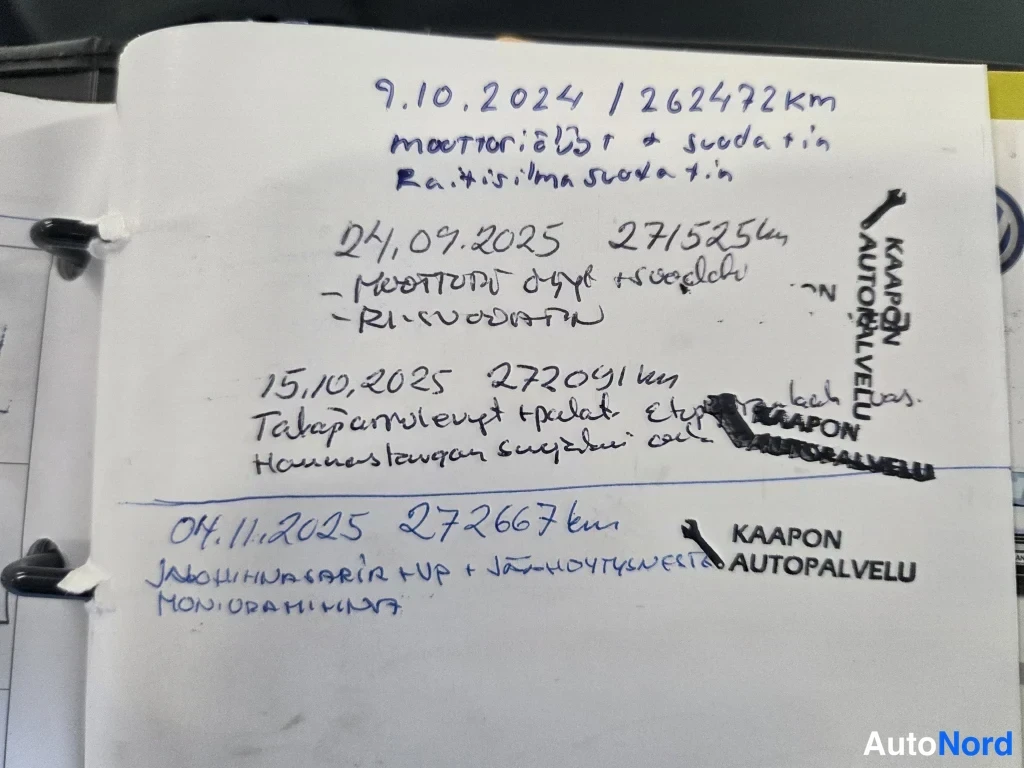 9.10.2024 / 262472 km
moottoriöljyt + suodatin
Raitisilmasuodatin
24.09.2025 271525 km
- MOOTTORI öljyt +suodatin
- RI-SUODATIN
KAAPON
AUTOPALVELU
15.10.2025 272091 km
Takajarrulevyt +palat vas.
KAAPON
AUTOPALVELU
04.11.2025 272667 km
JAKOHIHNASARJA +VP + JÄÄHDYTYSNESTE
MONIURAHIHNA
KAAPON
AUTOPALVELU
AutoNord